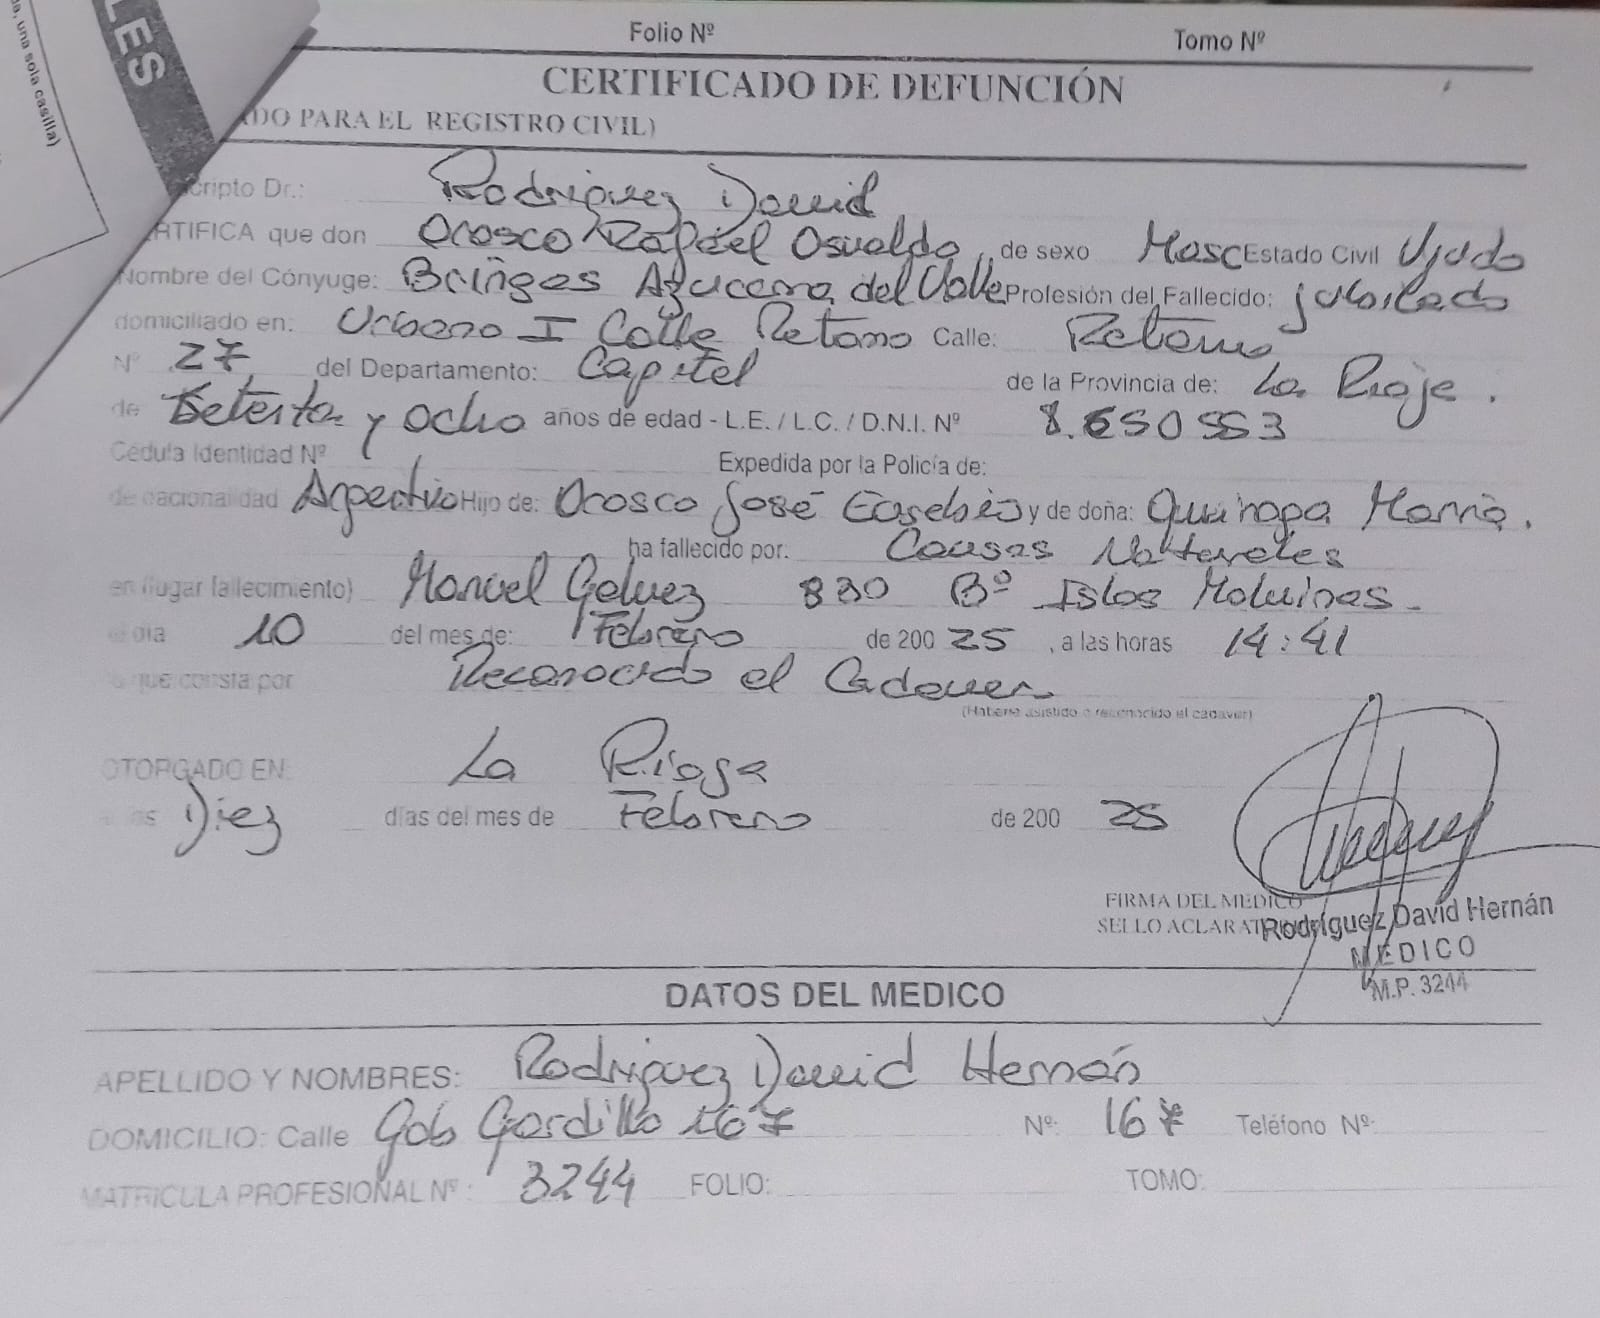 a, una sola casilla)
LES
Folio Nº Tomo Nº
CERTIFICADO DE DEFUNCIÓN
ADO PARA EL REGISTRO CIVIL)
cripto Dr.: Rodriguez David
RTIFICA que don Orosco Rafael Osvaldo, de sexo Masc Estado Civil Viudo
Nombre del Cónyuge: Azucena del Valle Profesión del Fallecido: jubilado
domiciliado en: Urbano I Calle Retamo Calle: Retamo
Nº 27 del Departamento: Capital de la Provincia de: La Rioja.
de Setenta y Ocho años de edad - L.E. / L.C. / D.N.I. Nº 8.650553
Cédula Identidad Nº Expedida por la Policía de:
de nacionalidad Argentino Hijo de: Orosco José Eusebio y de doña: María.
ha fallecido por: Causas Naturales
en (lugar fallecimiento) Manuel Galvez 830 Bº Islas Malvinas.
el día 10 del mes de: Febrero de 200 25, a las horas 14:41
lo que consta por Reconocido el Cadaver
(Haberle asistido o reconocido el cadaver)
OTORGADO EN: La Rioja
a los Diez días del mes de Febrero de 200 25
FIRMA DEL MEDICO
SELLO ACLARAT
Rodríguez David Hernán
MEDICO
M.P. 3244
DATOS DEL MEDICO
APELLIDO Y NOMBRES: Rodriguez David Hernán
DOMICILIO: Calle Gob Gordillo 167 Nº: 167 Teléfono Nº:
MATRICULA PROFESIONAL Nº: 3244 FOLIO: TOMO: